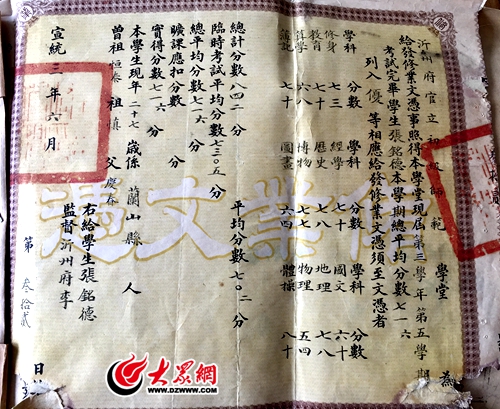 沂州府官立初級師範學堂為
給發修業文憑事照得本學堂現屆第三學年第五學期
考試完畢學生張銘德本學期總平均分數七一六
列入優等相應給發修業文憑須至文憑者
學科 分數 學科 分數 學科 分數
修身 七三 經學 七十 國文 六十
教育 歷史 七八 地理 七八
算學 博物 七八 物理 五七
七十 圖畫 六四 體操 八十
總計分數八四二分 平均分數七〇二分
臨時考試平均分數七三〇五分
總平均分數七一六分
曠課應扣分數 分
實得分數七一六分
本學生現年二十七歲係蘭山縣人
曾祖恒泰 祖慎 父慶春
右給學生張銘德
監督沂州府李
宣統二年六月 日
第叁拾貳
修業文憑
大眾網
WWW.DZWWW.COM